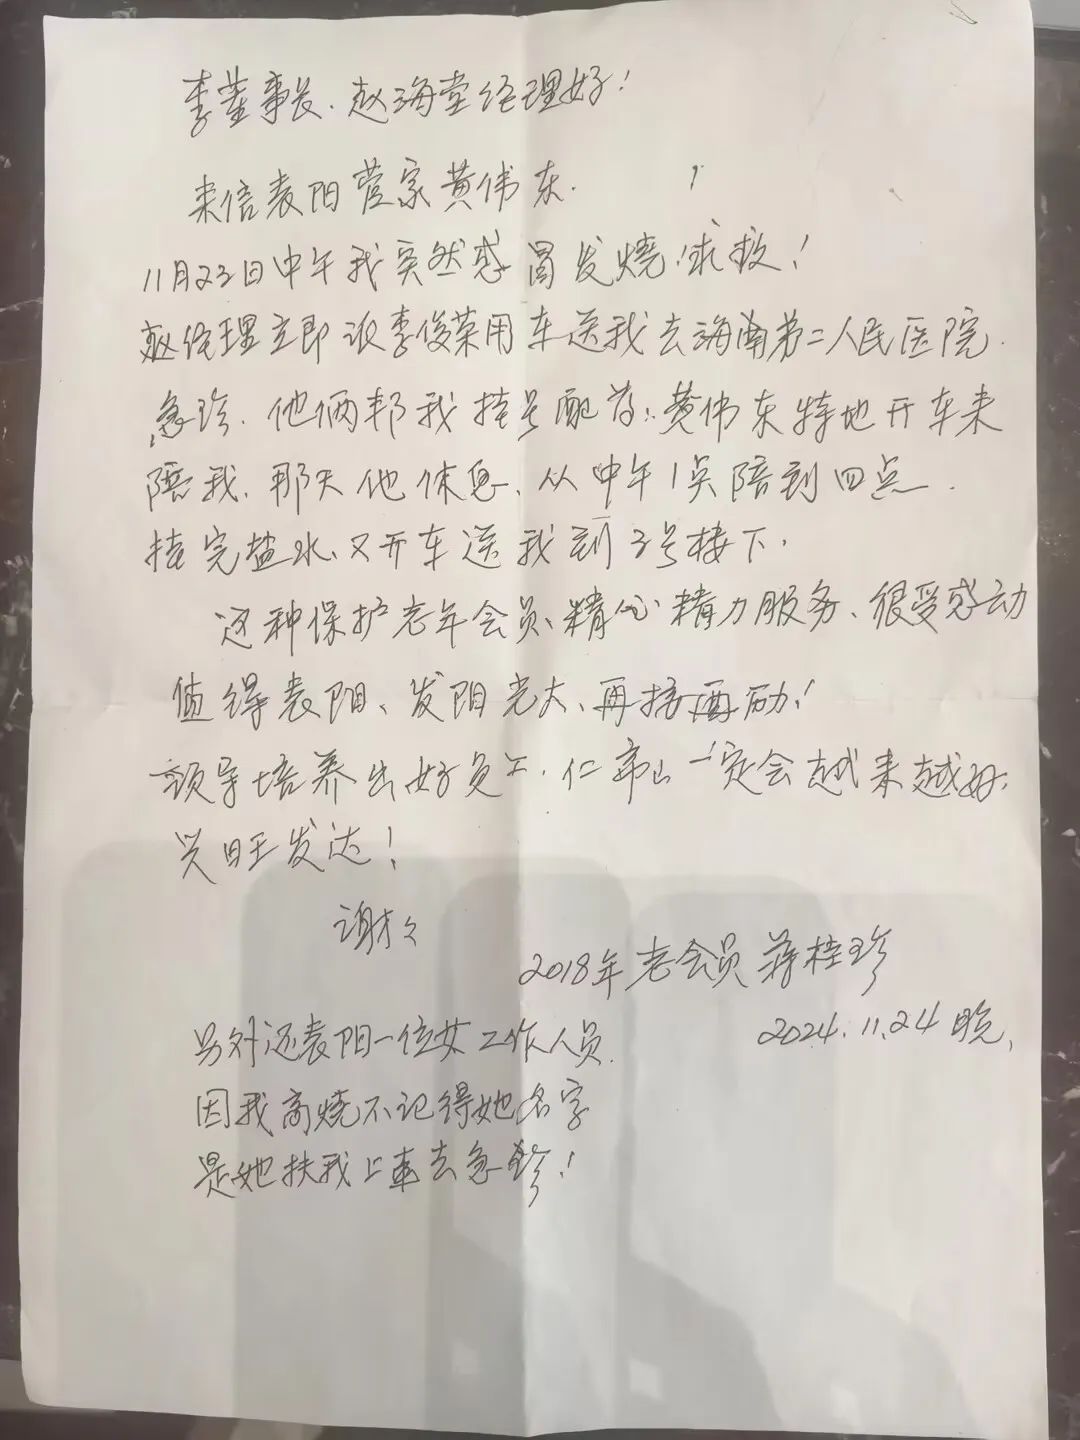 李董事长、赵海堂经理好！
来信表阳管家黄伟东.
11月23日中午我突然感冒发烧！求救！
赵经理立即派李俊荣用车送我去海南第二人民医院
急珍.他俩邦我挂号配药.黄伟东特地开车来
陪我.那天他休息、从中午1点陪到四点.
挂完盐水、又开车送我到3号楼下.
这种保护老年会员、精心精力服务、很受感动
值得表阳、发阳光大、再接再励！
领导培养出好员工.仁帝山一定会越来越好、
兴旺发达！
谢々
2018年老会员 蒋桂珍
2024.11.24晚、
另外还表阳一位女工作人员.
因我高烧不记得她名字
是她扶我上车去急珍！